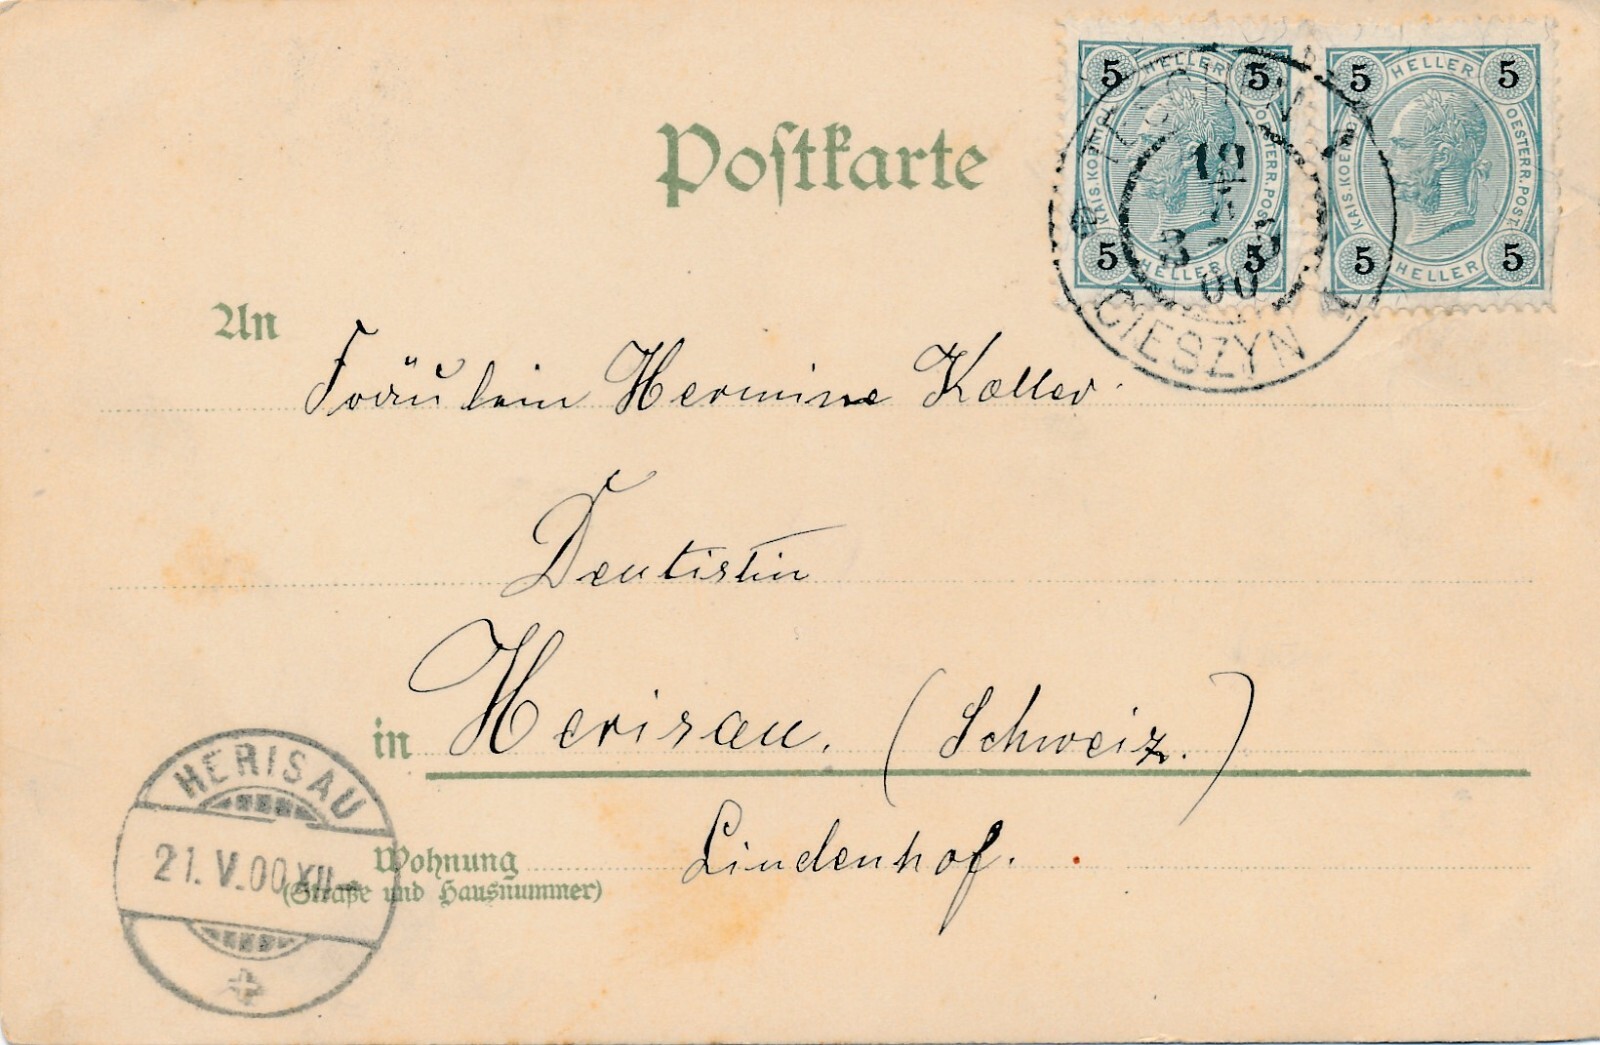 5 HELLER 5
KAIS. KOENIGL. OESTERR. POST
5 HELLER 5
5 HELLER 5
OESTERR. POST
5 HELLER 5
TESCHEN 1
8-9
00
CIESZYN 1
Postkarte
An
Fräulein Hermine Koeller
Dentistin
in Herisau. (Schweiz.)
Wohnung Lindenhof.
(Straße und Hausnummer)
HERISAU
21. V. 00 XII-